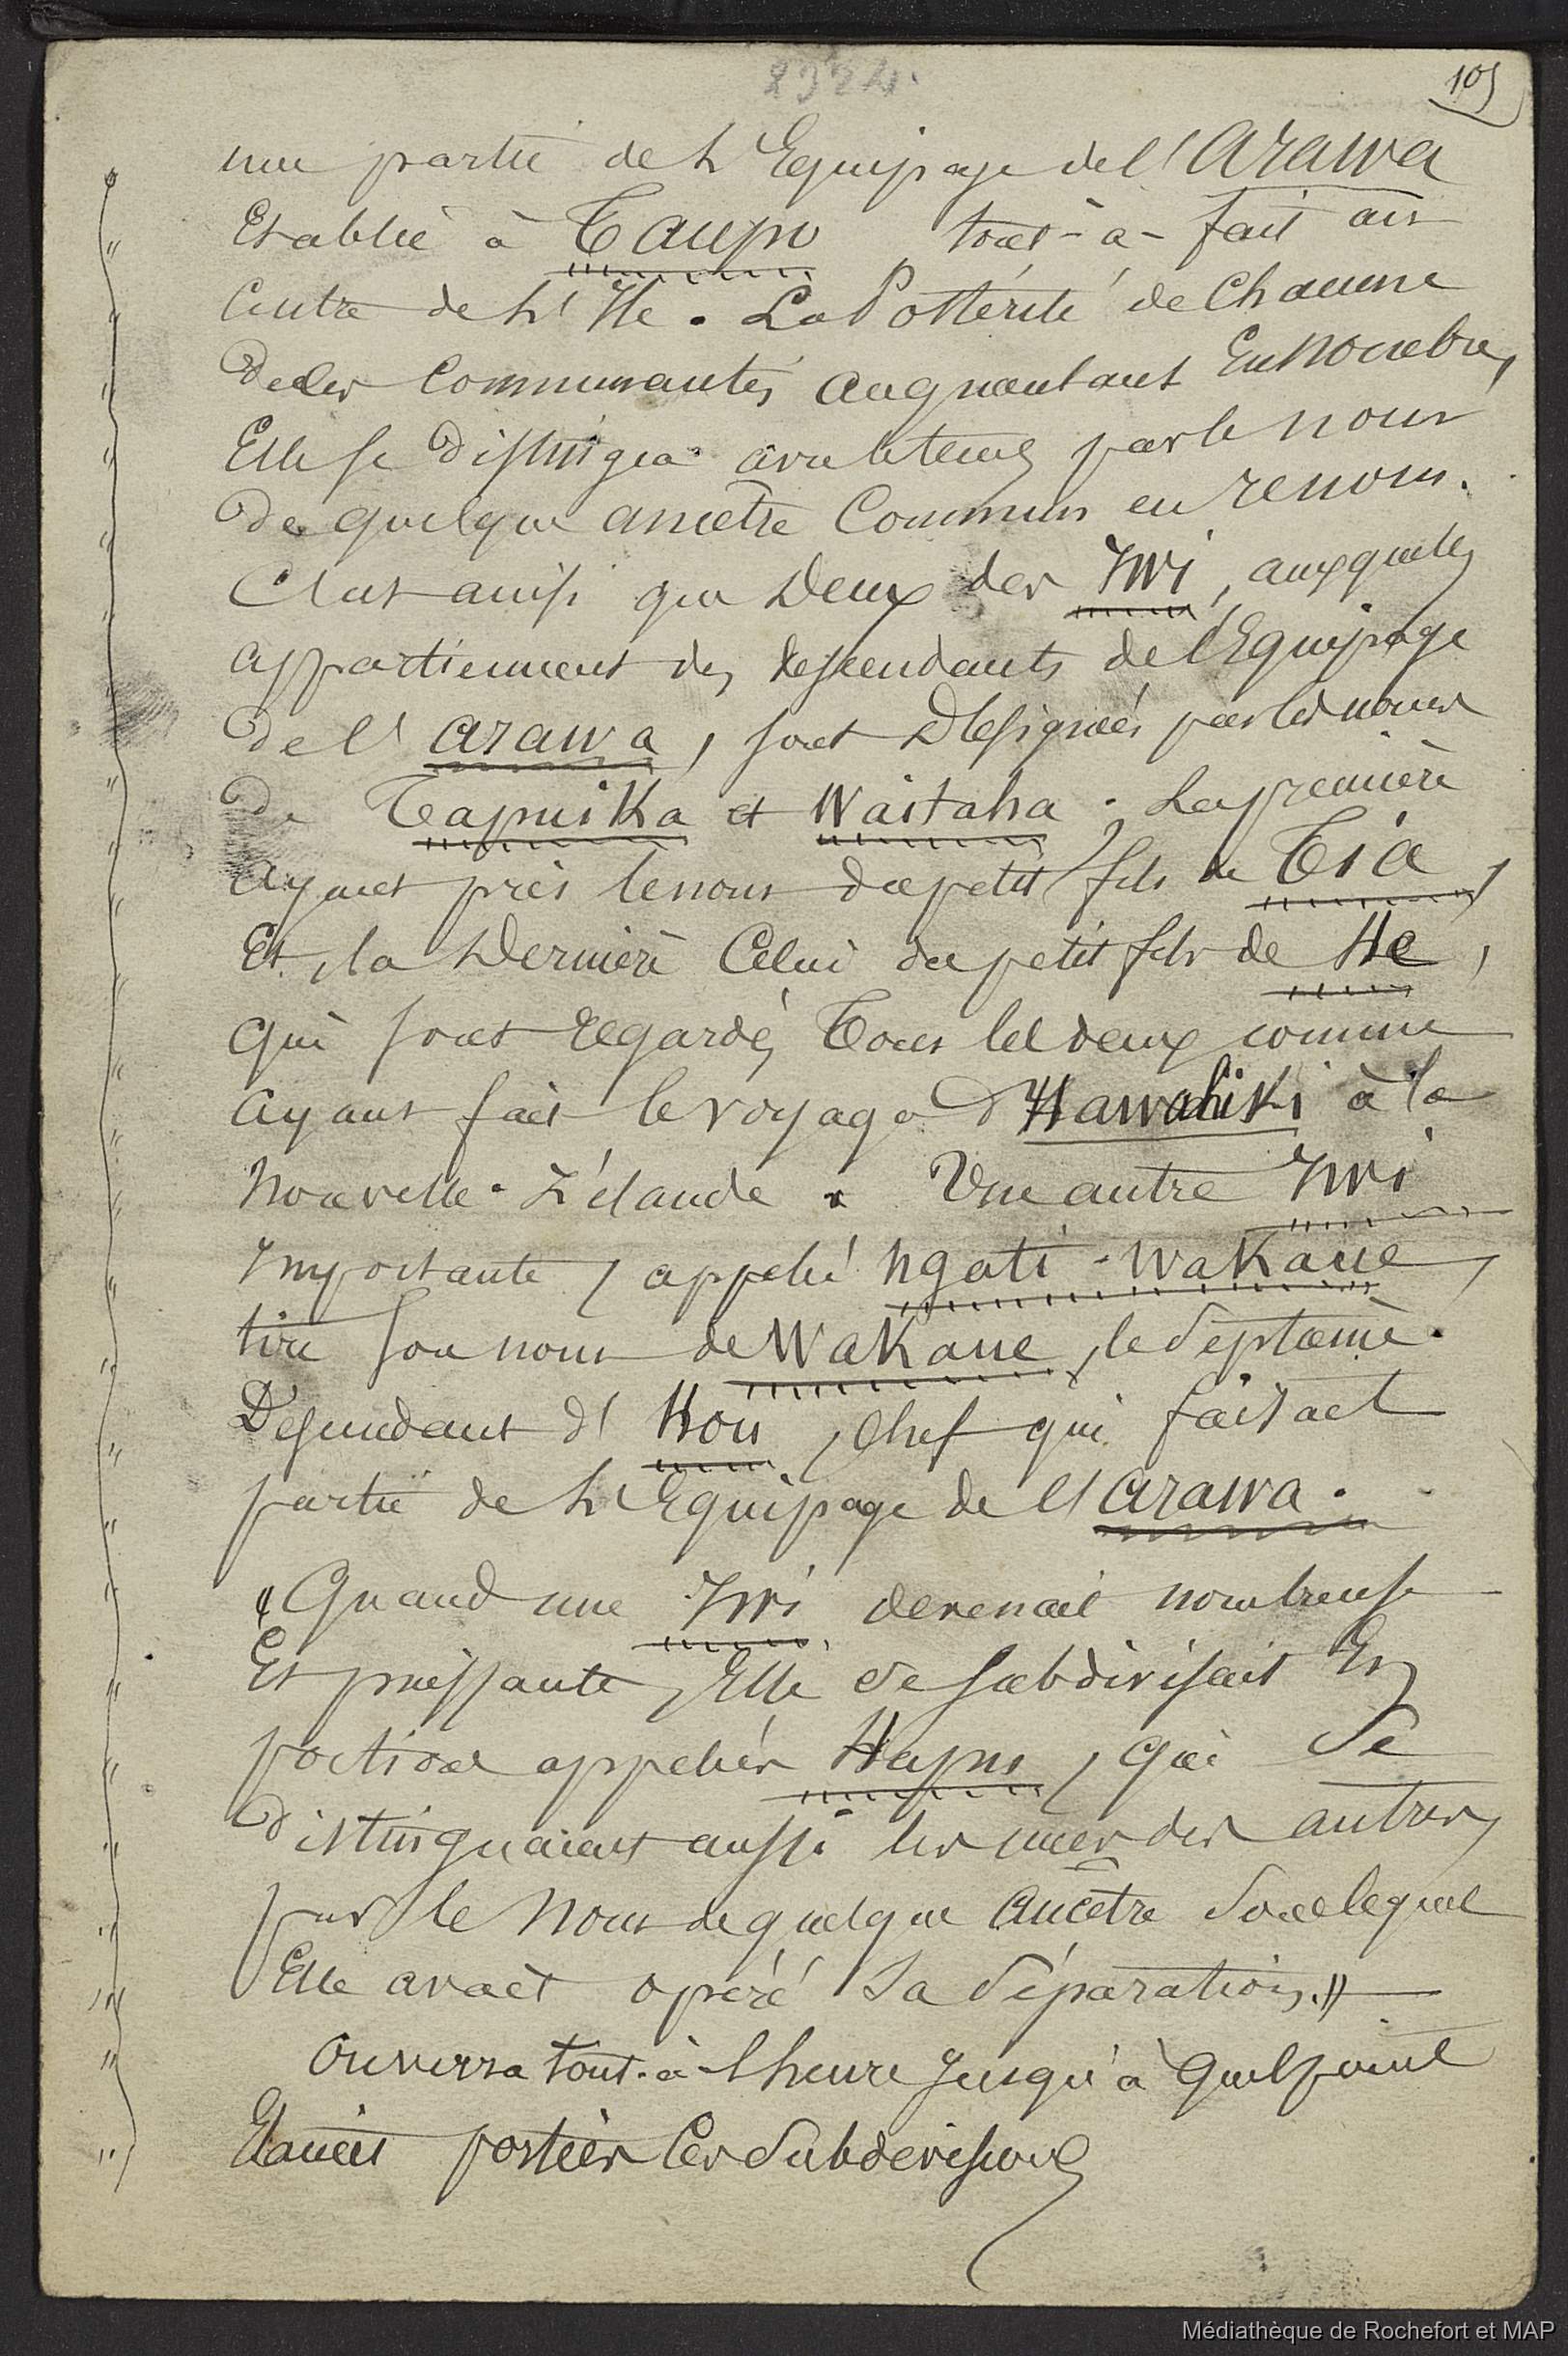 2324.
105
une partie de l'Equipage de l'Arawa
Etablie à Taupo tout-à-fait au
Centre de l'Ile. La Postérité de Chacune
de des Communautés augmentant En Nombre,
Elle se distingua avec le tems par le nom
de quelque ancêtre Commun en renom.
C'est ainsi que Deux des Iwi, auxquels
appartiennent des descendants de l'Equipage
de l'arawa, sont Désignés par les noms
de Tapuika et Waitaha ; La première
ayant pris le nom du petit fils de Tia,
Et, la Dernière Celui du petit fils de He,
qui sont regardés Tous les deux comme
ayant fait le voyage d'Hawahiki à la
Nouvelle-Zélande. Une autre Iwi
Importante, appelé Ngati-Wakaue,
tire son nom de Wakaue, le Septième
Descendant d'Hou, Chef qui faisait
partie de l'Equipage de l'arawa.
« Quand une Iwi devenait nombreuse
Et puissante, Elle se subdivisait En
portions appelées Hapu, qui se
distinguaient aussi les unes des autres,
par le Nom de quelque Ancêtre sous lequel
Elle avait opéré sa Séparation. »
On verra tout-à-l'heure Jusqu'à quel point
Etaient portées Ces Subdivisions
Médiathèque de Rochefort et MAP